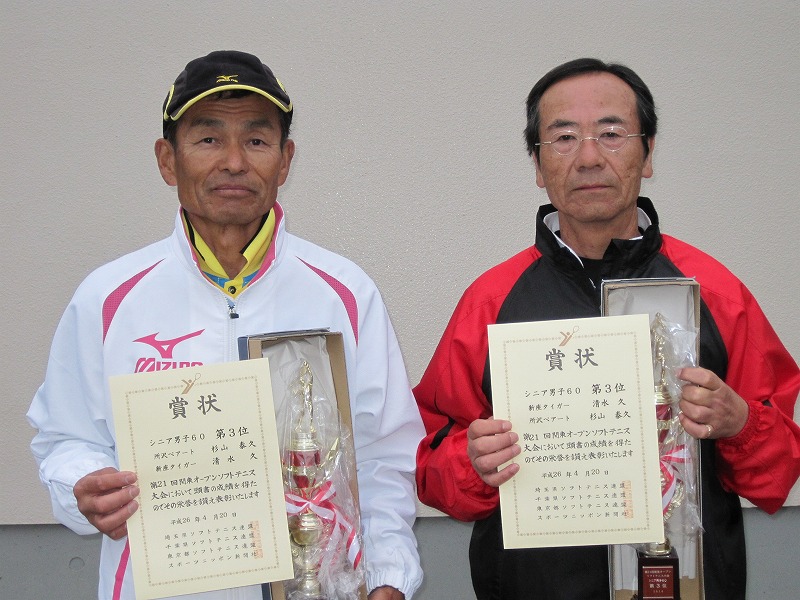 MIZUNO
賞状
シニア男子60 第3位
所沢ペアート 杉山 泰久
新座タイガー 清水 久
第21回関東オープンソフトテニス
大会において頭書の成績を得た
のでその栄誉を讃え表彰いたします
平成26年4月20日
埼玉県ソフトテニス連盟
千葉県ソフトテニス連盟
東京都ソフトテニス連盟
スポーツニッポン新聞社
賞状
シニア男子60 第3位
新座タイガー 清水 久
所沢ペアート 杉山 泰久
第21回関東オープンソフトテニス
大会において頭書の成績を得た
のでその栄誉を讃え表彰いたします
平成26年4月20日
埼玉県ソフトテニス連盟
千葉県ソフトテニス連盟
東京都ソフトテニス連盟
スポーツニッポン新聞社
第3位